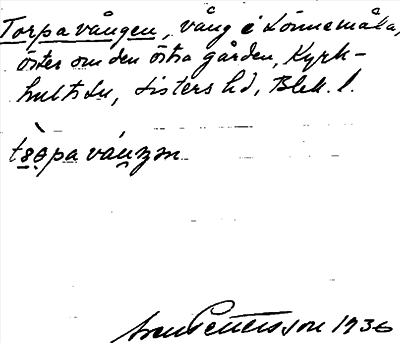 Torpavången, vång i Lönnemåla,
öster om den östra gården, Kyrk-
hults sn, Listers hd, Blek. l.
tɷrpaváŋən
Sven Pettersson 1936